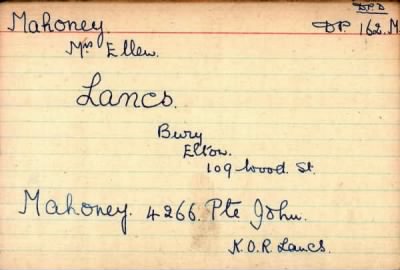 D.P.D
Mahoney D.P. 162. M
Mrs Ellen.
Lancs.
Bury
Elton.
109 Wood. St.
Mahoney. 4266. Pte John.
K.O.R. Lancs.